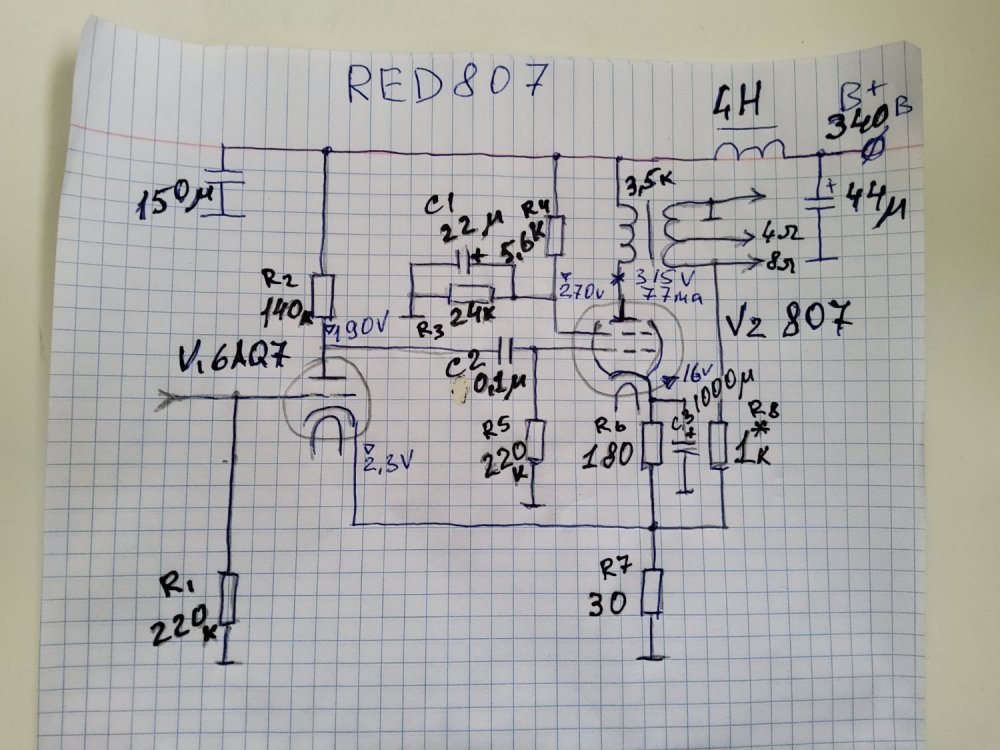 RED807
4H
B+
340В
150μ
C1
22μ
+
R4
5,6K
3,5K
+
44μ
4Ω
8Ω
R2
140K
190V
R3
24K
270V
315V
77ma
V2 807
V.6AQ7
C2
0,1μ
16V
1000μ
C3
+
R5
220
K
R6
180
R8
*
1K
2,3V
R1
220K
R7
30